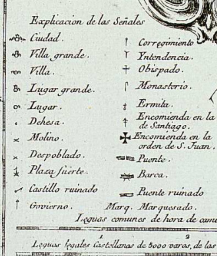 Explicación de las Señales
Ciudad.
Villa grande.
Villa.
Lugar grande.
Lugar.
Dehesa.
Molino.
Despoblado.
Plaza fuerte.
Castillo ruinado
Govierno.
Corregimiento
Yntendencia.
Obispado.
Monasterio.
Ermita.
Encomienda en la
de Santiago.
Encomienda en la
orden de S. Juan.
Puente.
Barca.
Puente ruinado
Marq. Marquesado.
Leguas comunes de hora de cami
Leguas legales Castellanas de 5000 varas, de las